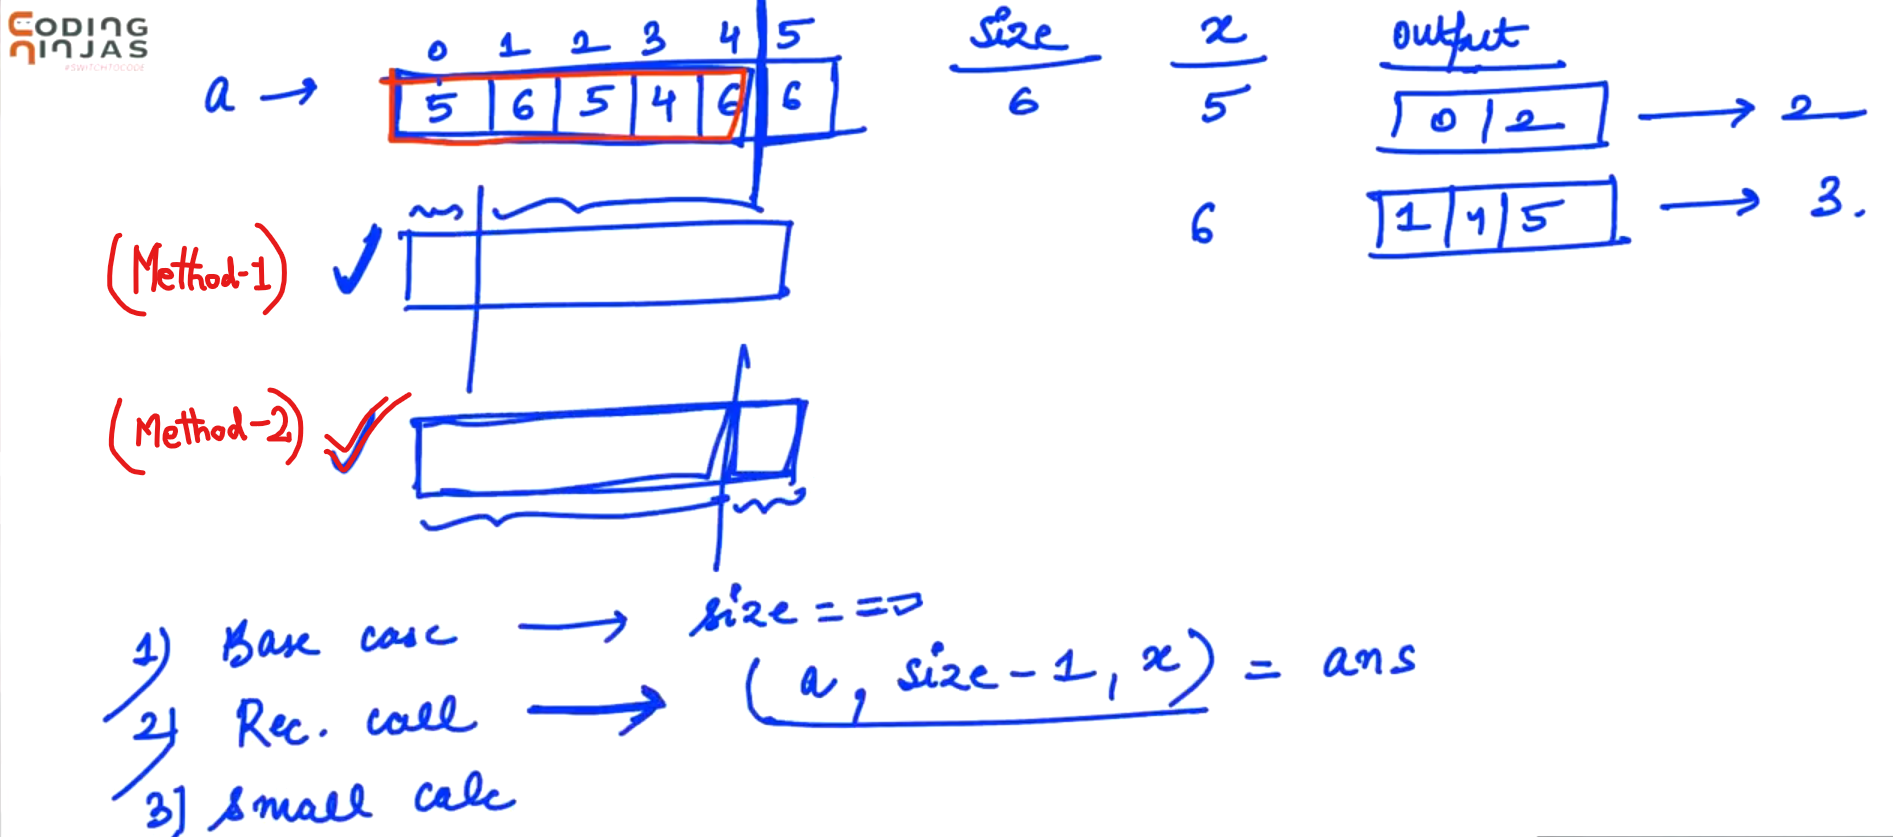 CODING
NINJAS
#SWITCHTOCODE
0 1 2 3 4 5 size x output
a → 5 6 5 4 6 6 6 5 0 2 → 2
6 1 4 5 → 3.
(Method-1)
(Method-2)
1) Base case → size ==
2) Rec. call → (a, size-1, x) = ans
3] small calc